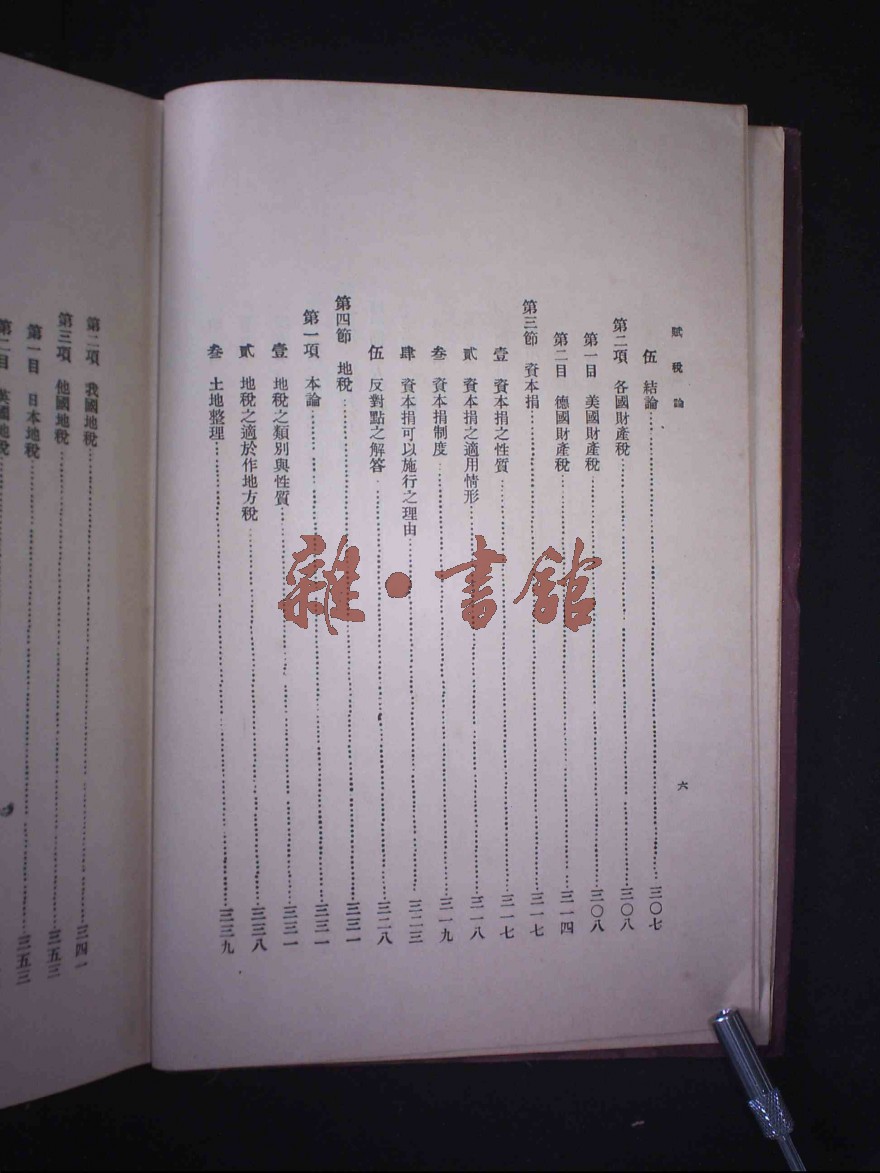 賦稅論
六
伍 結論 三〇七
第二項 各國財產稅 三〇八
第一目 美國財產稅 三〇八
第二目 德國財產稅 三一四
第三節 資本捐 三一七
壹 資本捐之性質 三一七
貳 資本捐之適用情形 三一八
叁 資本捐制度 三一九
肆 資本捐可以施行之理由 三二三
伍 反對點之解答 三二八
第四節 地稅 三三一
第一項 本論 三三一
壹 地稅之類別與性質 三三一
貳 地稅之適於作地方稅 三三八
叁 土地整理 三三九
第二項 我國地稅 三四一
第三項 他國地稅 三五三
第一目 日本地稅 三五三
第二目 英國地稅
雜·書館